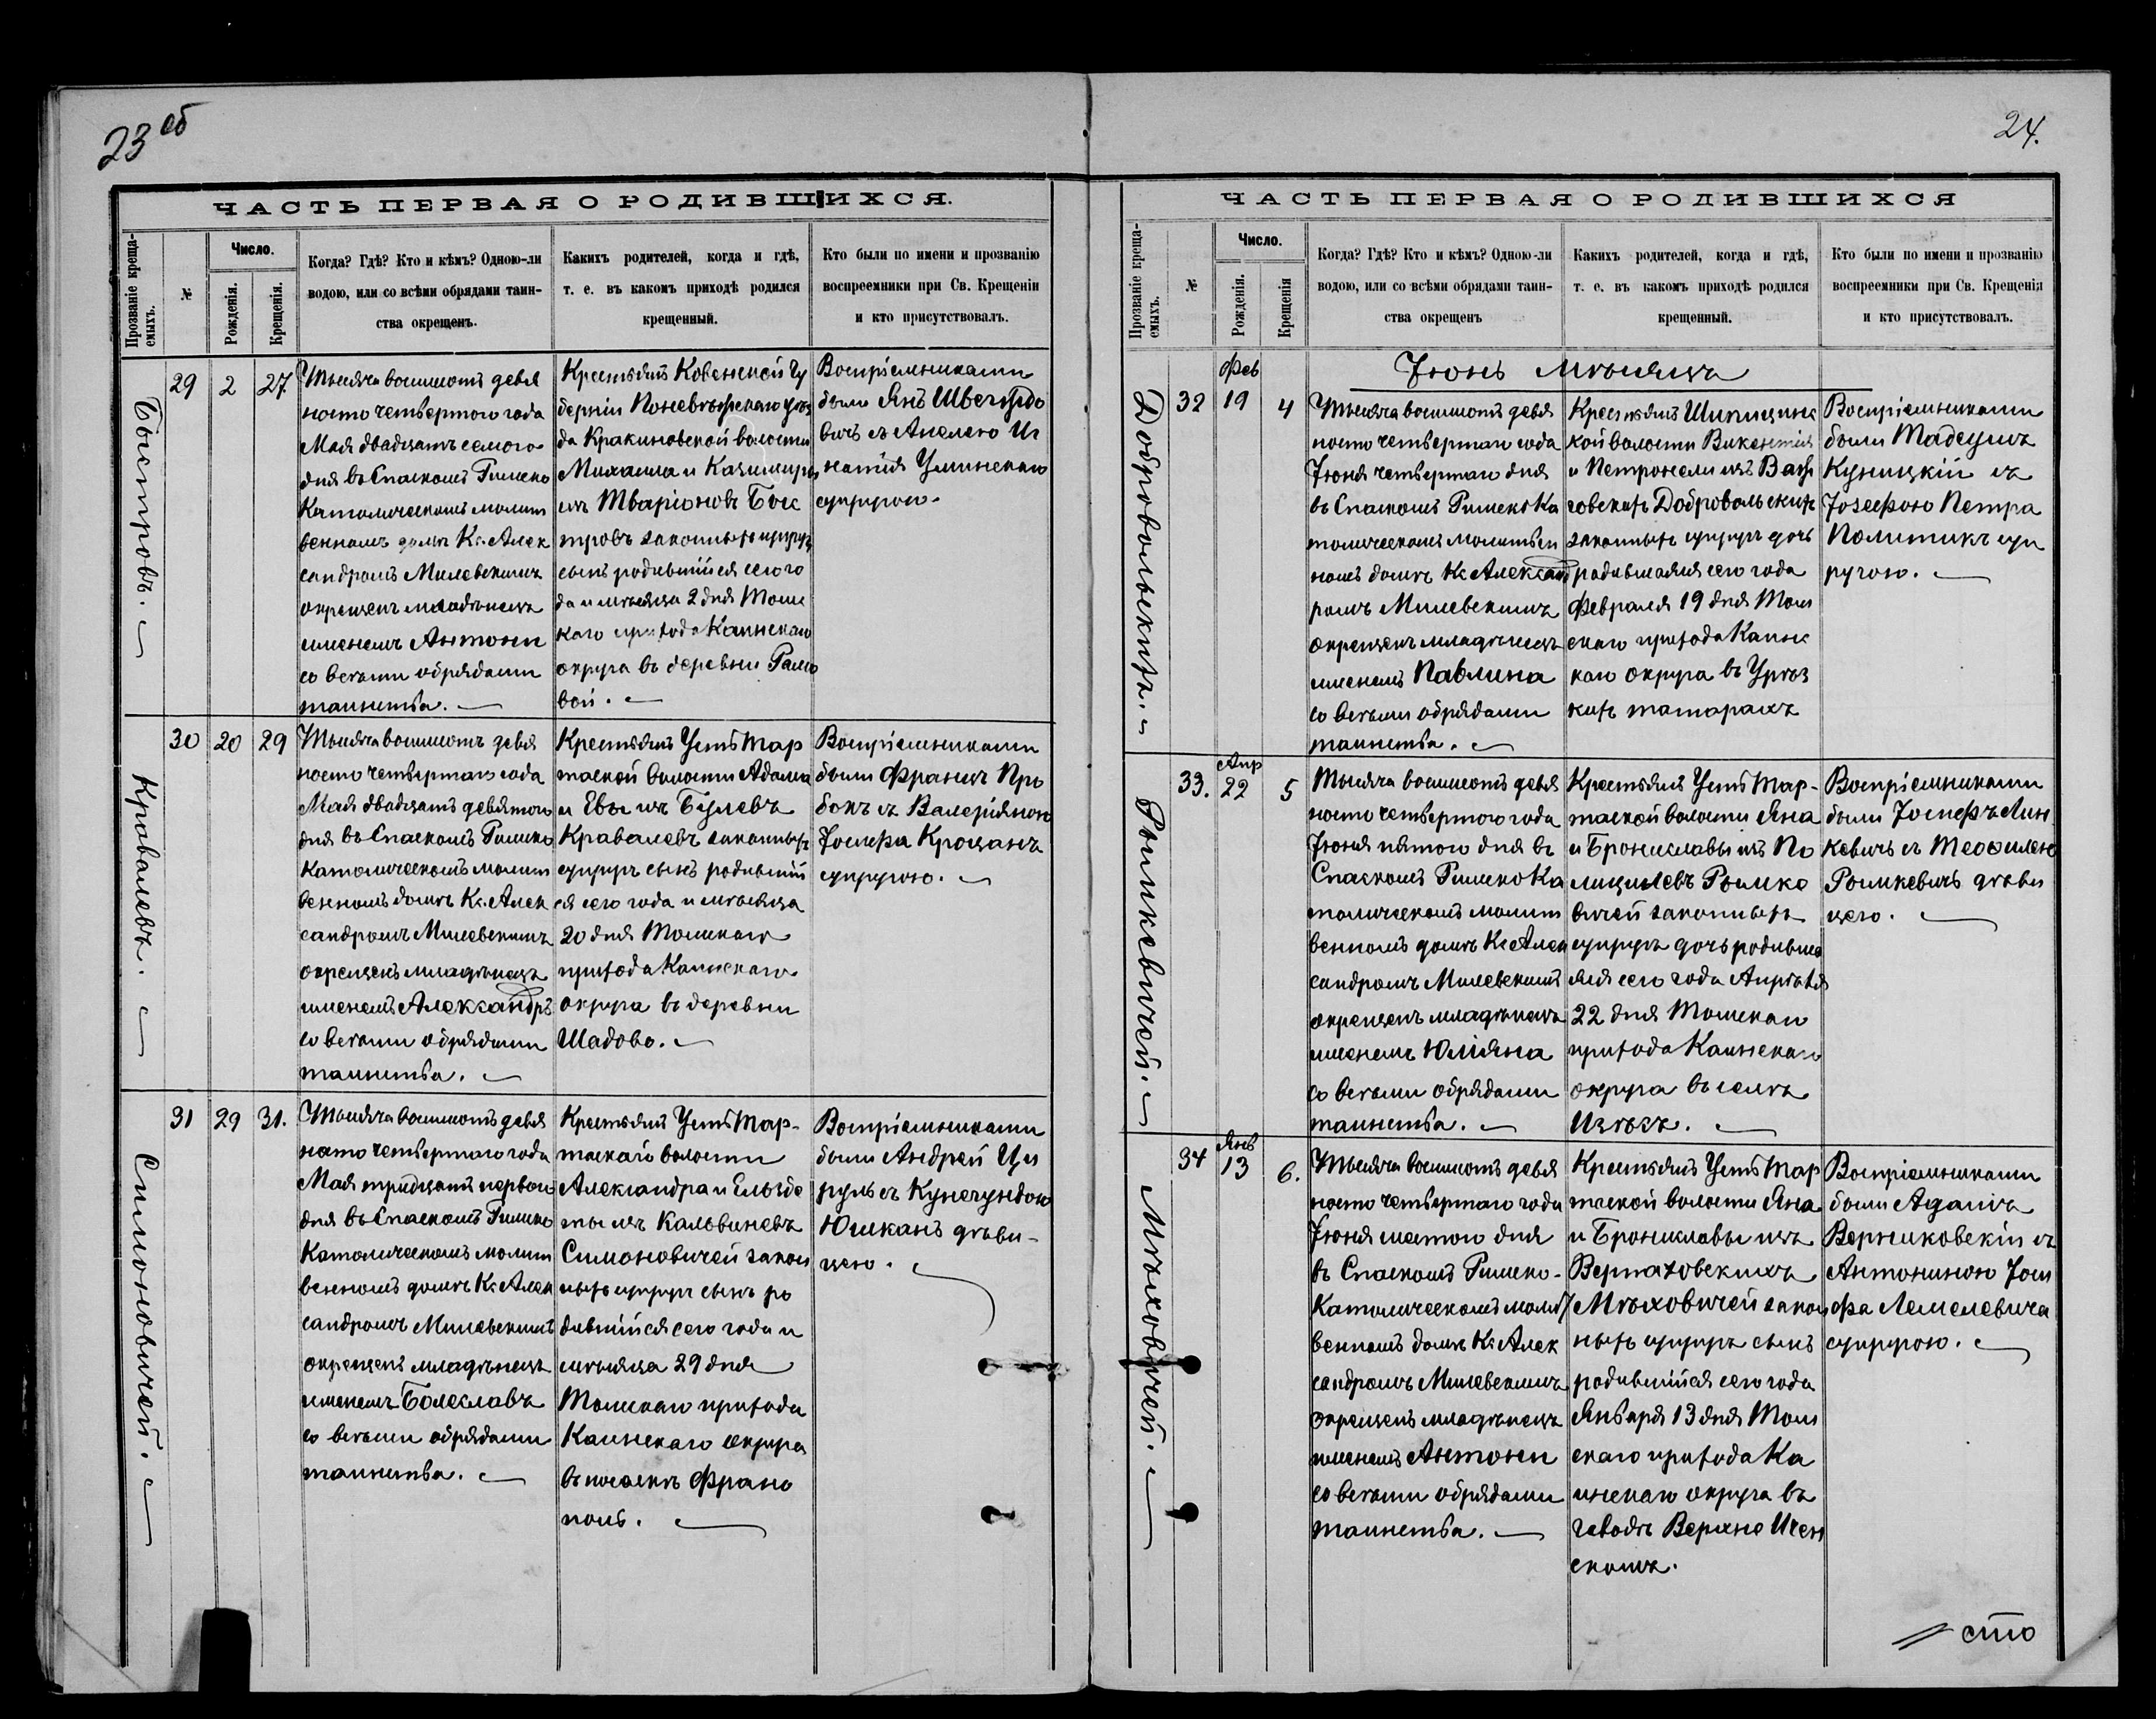 23 об
ЧАСТЬ ПЕРВАЯ О РОДИВШИХСЯ.
Прозваніе креща-
емыхъ.
№
Число.
Рожденія.
Крещенія.
Когда? Гдѣ? Кто и кѣмъ? Одною-ли
водою, или со всѣми обрядами таин-
ства окрещенъ.
Какихъ родителей, когда и гдѣ,
т. е. въ какомъ приходѣ родился
крещенный.
Кто были по имени и прозванію
воспреемники при Св. Крещеніи
и кто присутствовалъ.
Быстровъ.
29
2
27
Тысяча восьмсотъ девя
носто четвертого года
Мая двадцать седьмого
дня въ Спаскомъ Римско
Католическомъ молит
венномъ домѣ Кс. Алек
сандромъ Милевскимъ
окрещенъ младѣнецъ
именемъ Антони
со всѣми обрядами
таинства.
Крестьянъ Ковенской гу
берніи Поневѣжскаго уѣз
да Кракиновской волости
Михаила и Казимиры
изъ Тваріоновъ Быс
тровъ законныхъ супруг
сынъ родившійся сего го
да и мѣсяца 2 дня Томс
каго прихода Каинскаго
округа въ деревни Рамо
вой.
Воспріемниками
были Янъ Швегждо
вичъ съ Анелею Иг
натія Уминскаго
супругою.
Кровалевъ.
30
20
29
Тысяча восьмсотъ девя
носто четвертаго года
Мая двадцать девятого
дня въ Спаскомъ Римско
Католическомъ молит
венномъ домѣ Кс. Алек
сандромъ Милевскимъ
окрещенъ младѣнецъ
именемъ Александръ
со всѣми обрядами
таинства.
Крестьянъ Усть Тар
таской волости Адама
и Евы изъ Булевъ
Кравалевъ законныхъ
супругъ сынъ родившій
ся сего года и мѣсяца
20 дня Томскаго
прихода Каинскаго
округа въ деревни
Шадово.
Воспріемниками
были Францъ Про
бокъ съ Валеріяною
Іосифа Кроцанъ
супругою.
Симоновичей.
31
29
31.
Тысяча восьмсотъ девя
носто четвертого года
Мая тридцать первого
дня въ Спаскомъ Римско
Католическомъ молит
венномъ домѣ Кс. Алек
сандромъ Милевскимъ
окрещенъ младѣнецъ
именемъ Болеславъ
со всѣми обрядами
таинства.
Крестьянъ Усть Тар-
таскаго волости
Александра и Ельзбе
ты изъ Кальвиневъ
Симоновичей закон
ныхъ супругъ сынъ ро
дившійся сего года и
мѣсяца 29 дня
Томскаго прихода
Каинскаго округа
въ поселкѣ Франо
поль.
Воспріемниками
были Андрей Цы
руль съ Кунегундою
Юшканъ дѣви-
цею.
24.
ЧАСТЬ ПЕРВАЯ О РОДИВШИХСЯ
Прозваніе креща-
емыхъ.
№
Число.
Рожденія.
Крещенія
Когда? Гдѣ? Кто и кѣмъ? Одною-ли
водою, или со всѣми обрядами таин-
ства окрещенъ
Какихъ родителей, когда и гдѣ,
т. е. въ какомъ приходѣ родился
крещенный.
Кто были по имени и прозванію
воспреемники при Св. Крещенія
и кто присутствовалъ.
Іюнь Мѣсяцъ
Добровольскихъ.
32
Фев
19
4
Тысяча восьмсотъ девя
носто четвертаго года
Іюня четвертаго дня
въ Спаскомъ Римско Ка
толическомъ молитвен
номъ домѣ Кс Александ
ромъ Милевскимъ
окрещенъ младѣнецъ
именемъ Павлина
со всѣми обрядами
таинства.
Крестьянъ Шипицинс
кой волости Викентія
и Петронели изъ
Добровольскихъ
законныхъ супругъ дочь
родившаяся сего года
Февраля 19 дня Том
скаго прихода Каинс
каго округа въ Угуз
кихъ татарахъ
Воспріемниками
были Тадеушъ
Куницкій съ
Іозефою Петра
Политикъ суп
ругою.
Рымкевичей.
33.
Апр
22
5
Тысяча восьмсотъ девя
носто четвертого года
Іюня пятого дня въ
Спаскомъ Римско Ка
толическомъ молит
венномъ домѣ Кс Алек
сандромъ Милевскимъ
окрещенъ младѣнецъ
именемъ Юліяна
со всѣми обрядами
таинства.
Крестьянъ Усть Тар-
таской волости Яна
и Брониславы изъ По
лицилевъ Рымке
вичей законныхъ
супругъ дочь родивша
яся сего года Апрѣля
22 дня Томскаго
прихода Каинскаго
округа въ селѣ
Изѣзъ.
Воспріемниками
были Іосифъ Лин
кевичъ съ Теофилею
Рымкевичъ дѣви
цею.
Мѣховичей.
34
Янв
13
6.
Тысяча восьмсотъ девя
носто четвертаго года
Іюня шестого дня
въ Спаскомъ Римско-
Католическомъ молит
венномъ домѣ Кс Алек
сандромъ Милевскимъ
окрещенъ младѣнецъ
именемъ Антони
со всѣми обрядами
таинства.
Крестьянъ Усть Тар
таской волости Яна
и Брониславы изъ
Верпаховскихъ
Мѣховичей закон
ныхъ супругъ сынъ
родившійся сего года
Января 13 дня Том
скаго прихода Ка
инскаго округа въ
заводѣ Верхне Ичен
скомъ.
Воспріемниками
были Адамъ
Вержиковскій съ
Антониною Іоси
фа Лемелевича
супругою.
сто